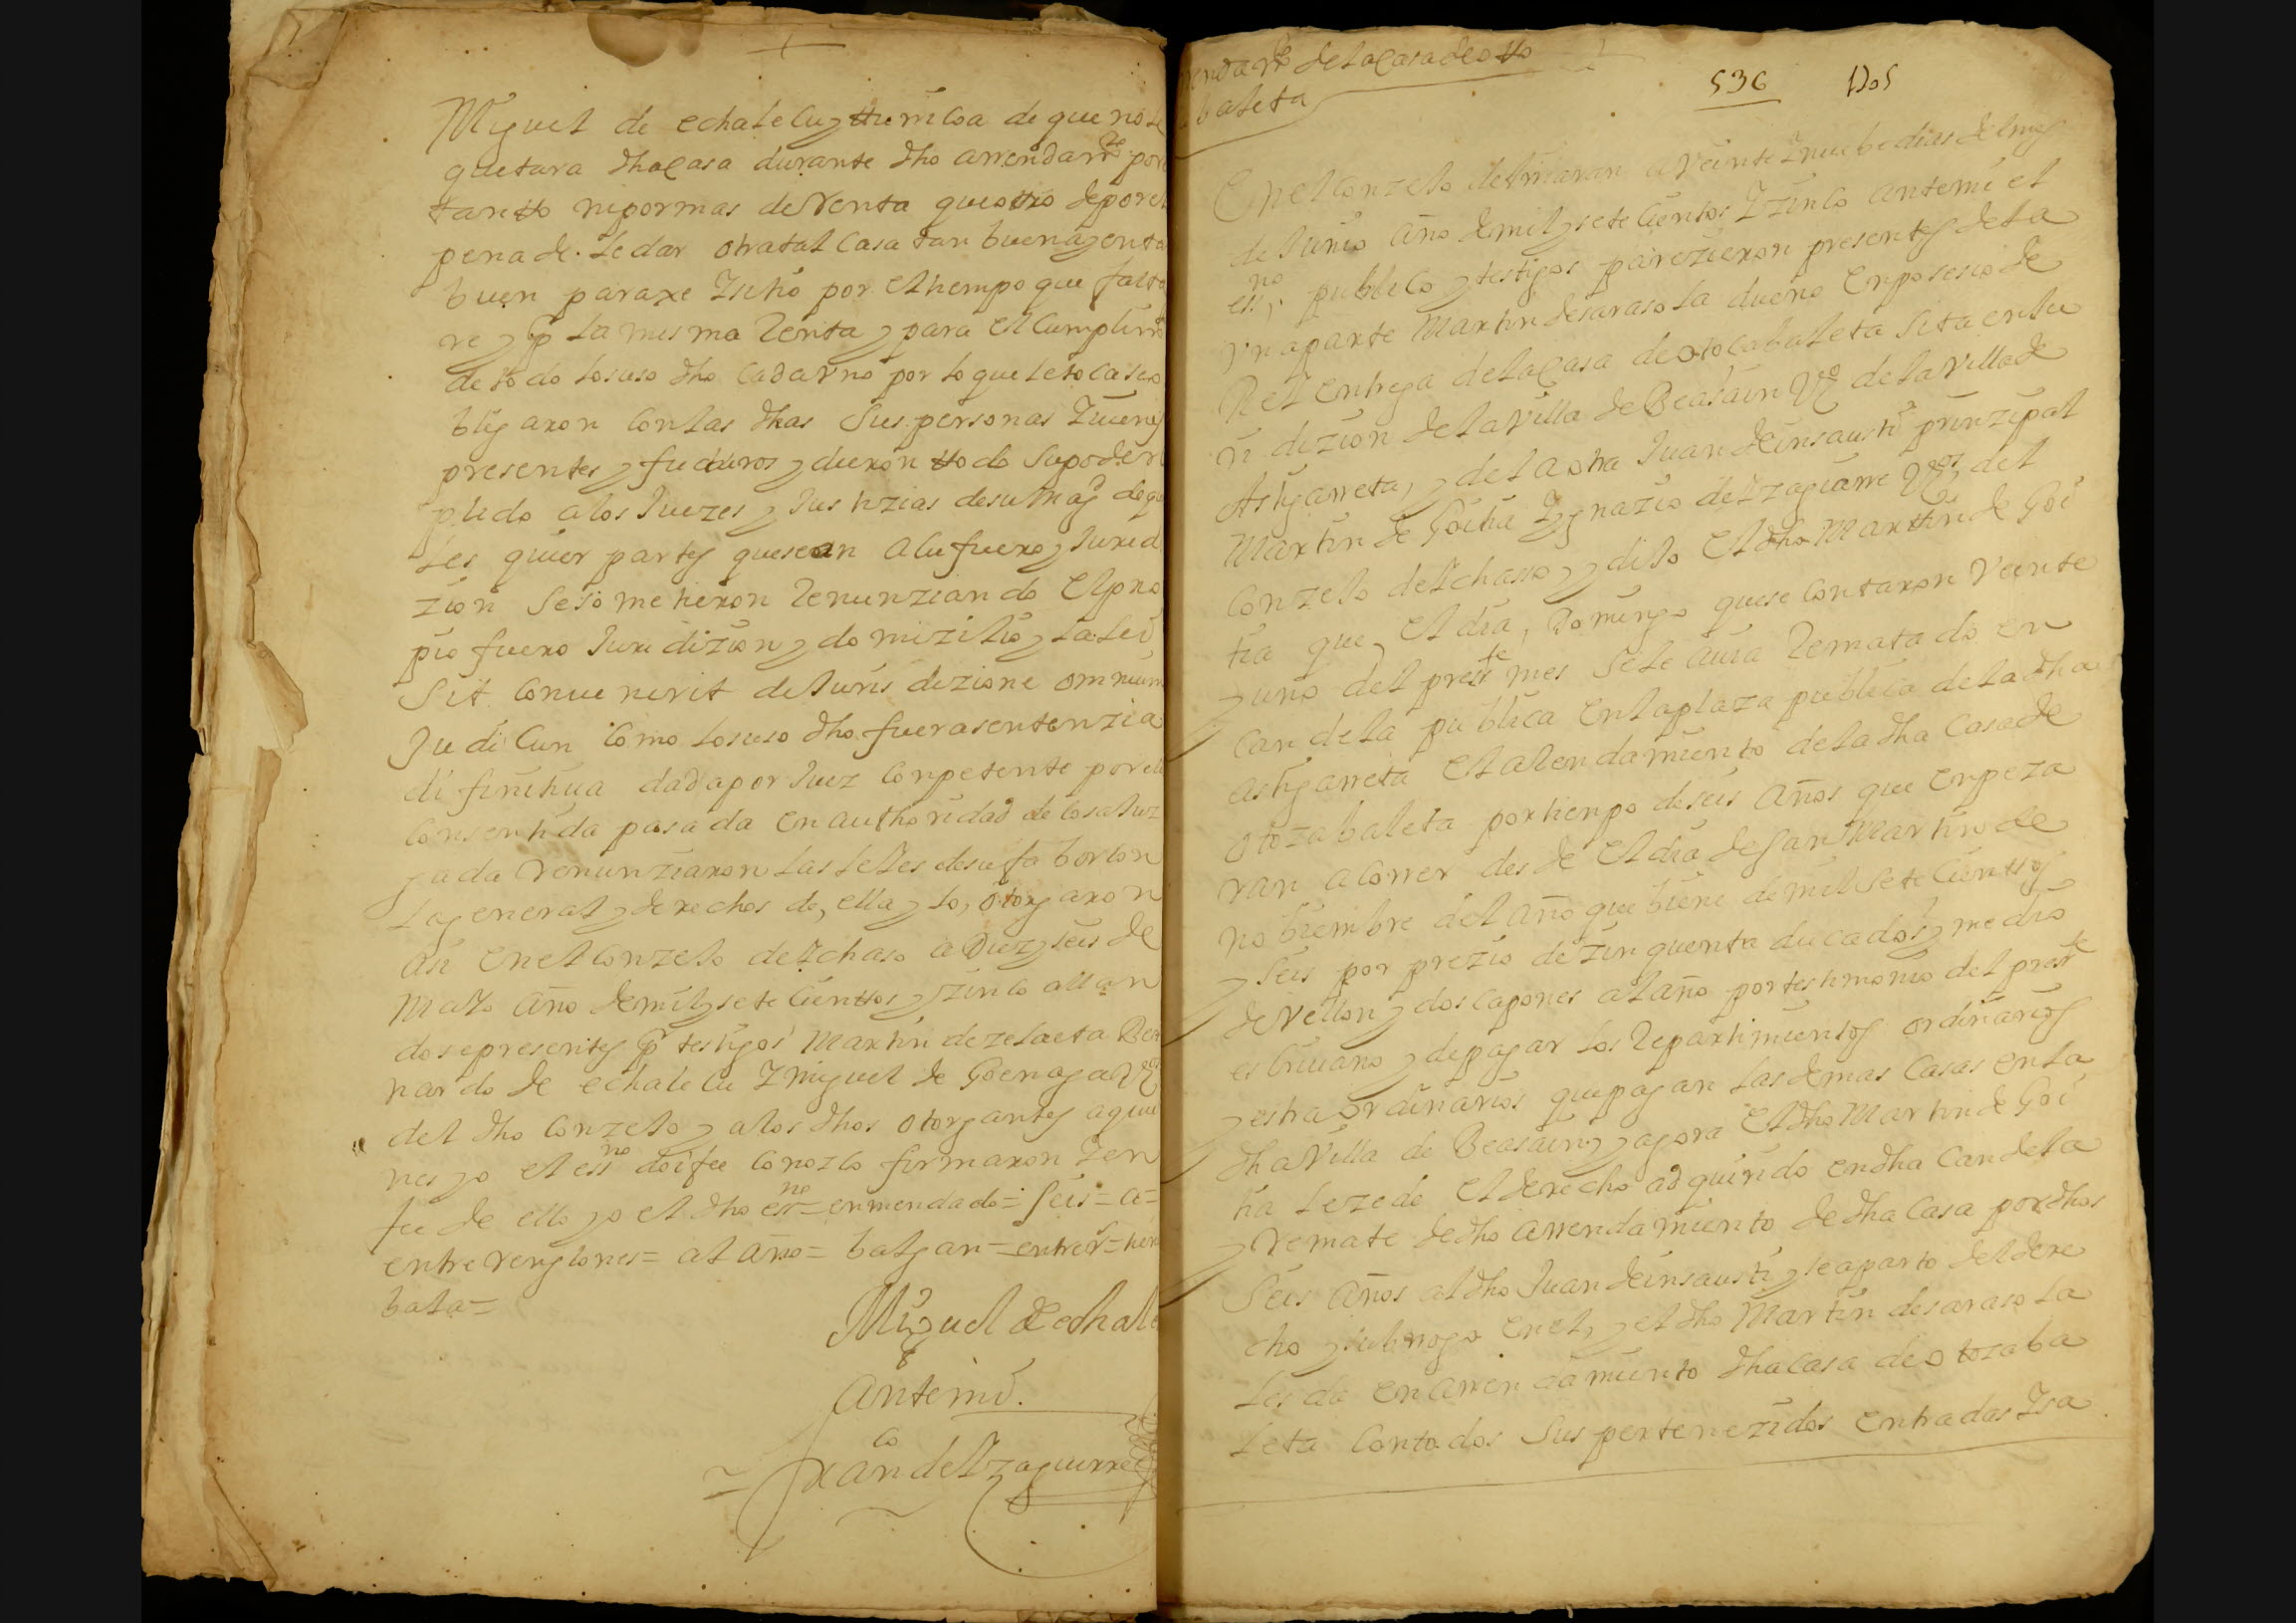 Miguel de echaleCu y ttuviCoa de que no le
quitara dha Casa durante dho arrendamto por
tanto ni por mas de Renta que otro de por el
pena de. le dar otra tal Casa tan buena y en ta
buen paraxe Y sitio por el tiempo que falta
re y pr la misma Renta y para el Cumplimto
de todo lo suso dho Cada Vno por lo que le toca se o
bligaron Con las dhas Sus personas Y vienes
presentes y futuros y dieron ttodo Su poder
plido a los Juezes y Justizias de su Magd de qua
les quier partes que sean a Cu fuero y Jurid
zion Se sometieron Renunziando El pro
pio fuero Juridizion y domizilio y la lei
Sit Convenerit de Jurisdizione omnium
JudiCun Como lo suso dho fuera sentenzia
difinitiua dada por Juez Conpetente por ell
Consentida pasada en authoridad de Cosa Juz
gada renunziaron las leies de su fabor Con
la general y derechos de, ella y lo, otorgaron
asi en el Conzejo de Ychaso a Diez y seis de
Mayo año de mil y sete Cientos y zinCo allan
dose presentes pr testigos Martin de zelaeta Ber
nardo de echaleCu Y miguel de Goenaga Vzos
del dho Conzejo y a los dhos otorgantes a quie
nes yo el essno doi fee ConozCo firmaron Y en
fee de ello yo el dho esno= enmendado= Seis= a=
entre renglones= al año= balgan= entre rs=
bala=
Miguel de echale
Ante mi.
Franco de Yzaguirre
arrendamto de la Casa de otto
baleta
536 Dos
En el Conzejo de Ymaran a Veinte Y nuebe dias del mes
de Junio año de mil y sete Cientos Y zinCo ante mi el
essno publiCo y testigos parezieron presentes de la
Vna parte Martin de saraso la dueño En posesio de
R el Entrega de la Casa de otocabaleta Sita en Ju
ridizion de la Villa de Beasain Vzo de la Villa de
Astigarreta, y de la otra Juan de insausti prinzipal
Martin de Goitia Y ygnazio de Yzaguirre Vzos, del
Conzejo de Ychasso y dijo El dho Martin de Goi
tia que, El dia, Domingo que se Contaron Veinte
y uno del preste mes Se le avia Rematado en
Candela publica En la plaza publica de la dha
astigarreta El arendamiento de la dha Casa de
otozabaleta por tienpo de seis años que Enpeza
ran a Correr desde El dia de San Martin de
nobiembre del año que biene de mil sete Cientos
y Seis por prezio de zinquenta ducados y medio
de Vellon y dos capones al año por testimonio del preste
esCriuano y de pagar los Repartimientos ordinarios
y estraordinarios que pagan las demas Casas en la
dha Villa de Beasain y agora El dho Martin de Goi
tia le zede El derecho adquirido en dha Candela
y Remate de dho arrendamiento de dha Casa por dhos
Seis años al dho Juan de insausti y se aparto del dere
cho y subrrogo en el, y el dho Martin de saraso la
les da en arrendamiento dha Casa de otozaba
leta Con todos Sus pertenezidos Entradas Y sa